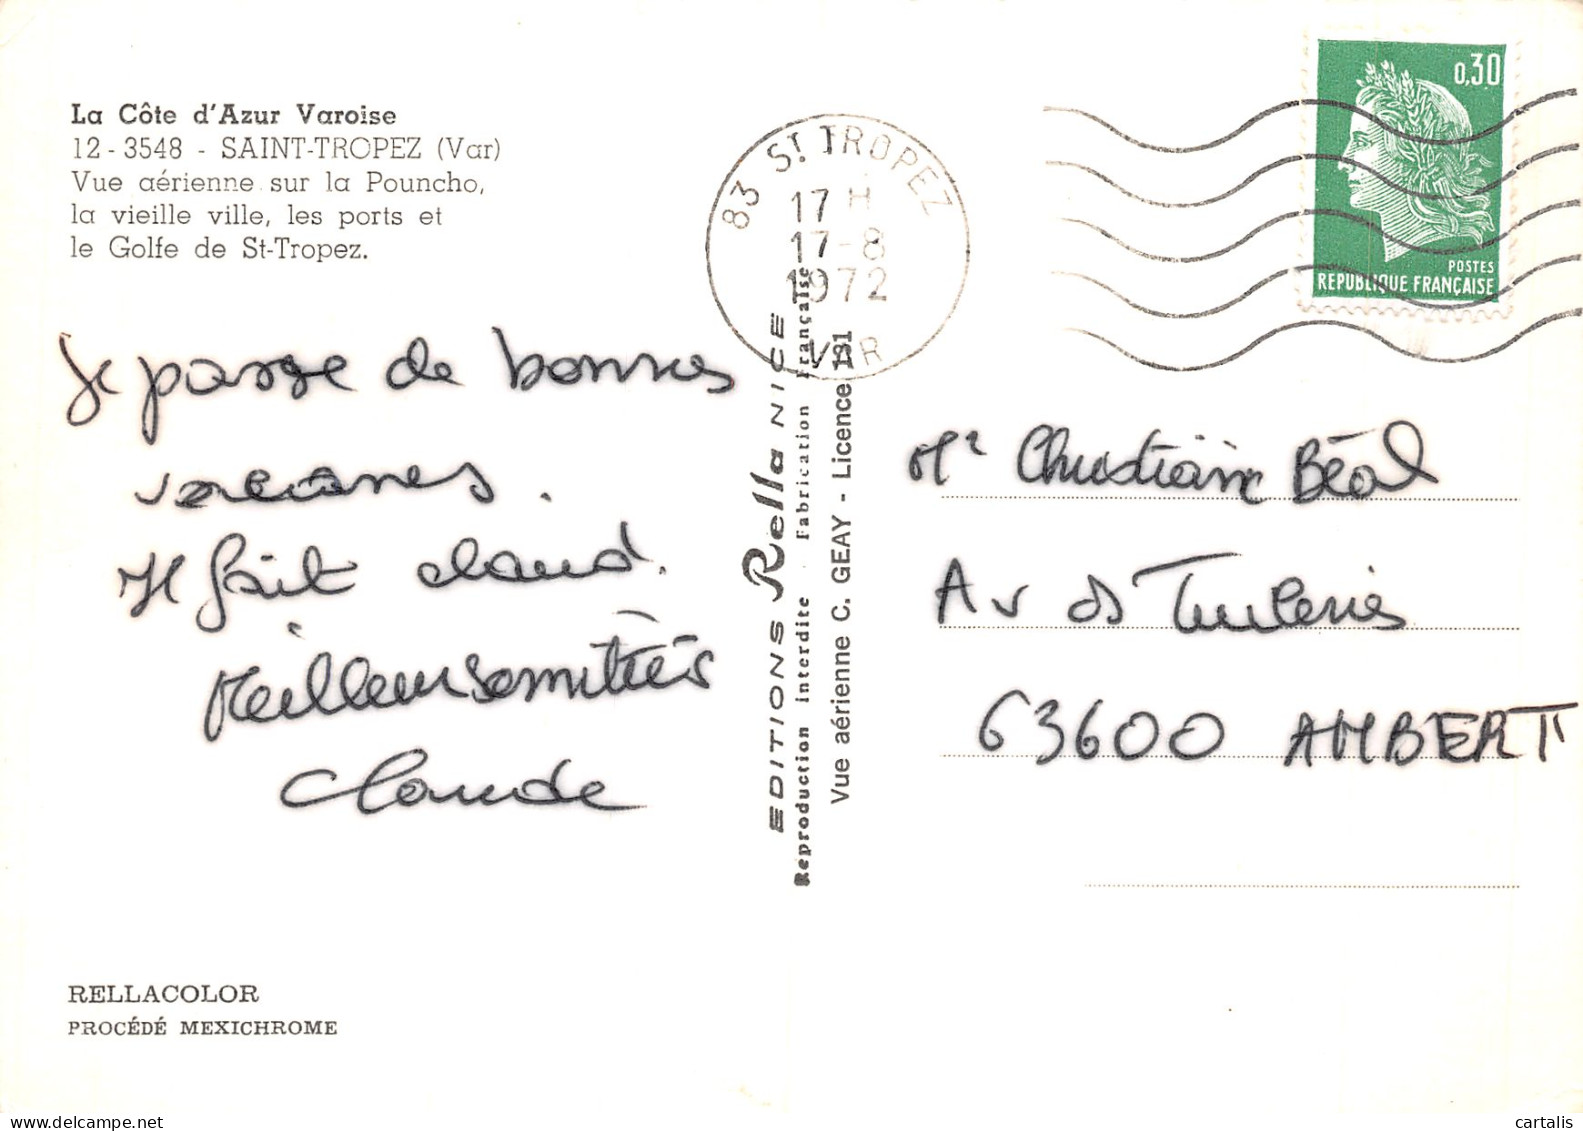 La Côte d'Azur Varoise
12 - 3548 - SAINT-TROPEZ (Var)
Vue aérienne sur la Pouncho,
la vieille ville, les ports et
le Golfe de St-Tropez.
Je passe de bonnes
vacances.
Il fait chaud.
Meilleurs amitiés
Claude
RELLACOLOR
PROCÉDÉ MEXICHROME
EDITIONS Rella NICE
Reproduction Interdite Fabrication Française
Vue aérienne C. GEAY - Licence 181
83 ST TROPEZ
17 H
17-8
1972
VAR
0,30
POSTES
REPUBLIQUE FRANÇAISE
Mr Christian Béal
Av ds Tuileries
63600 AMBERT
cartalis